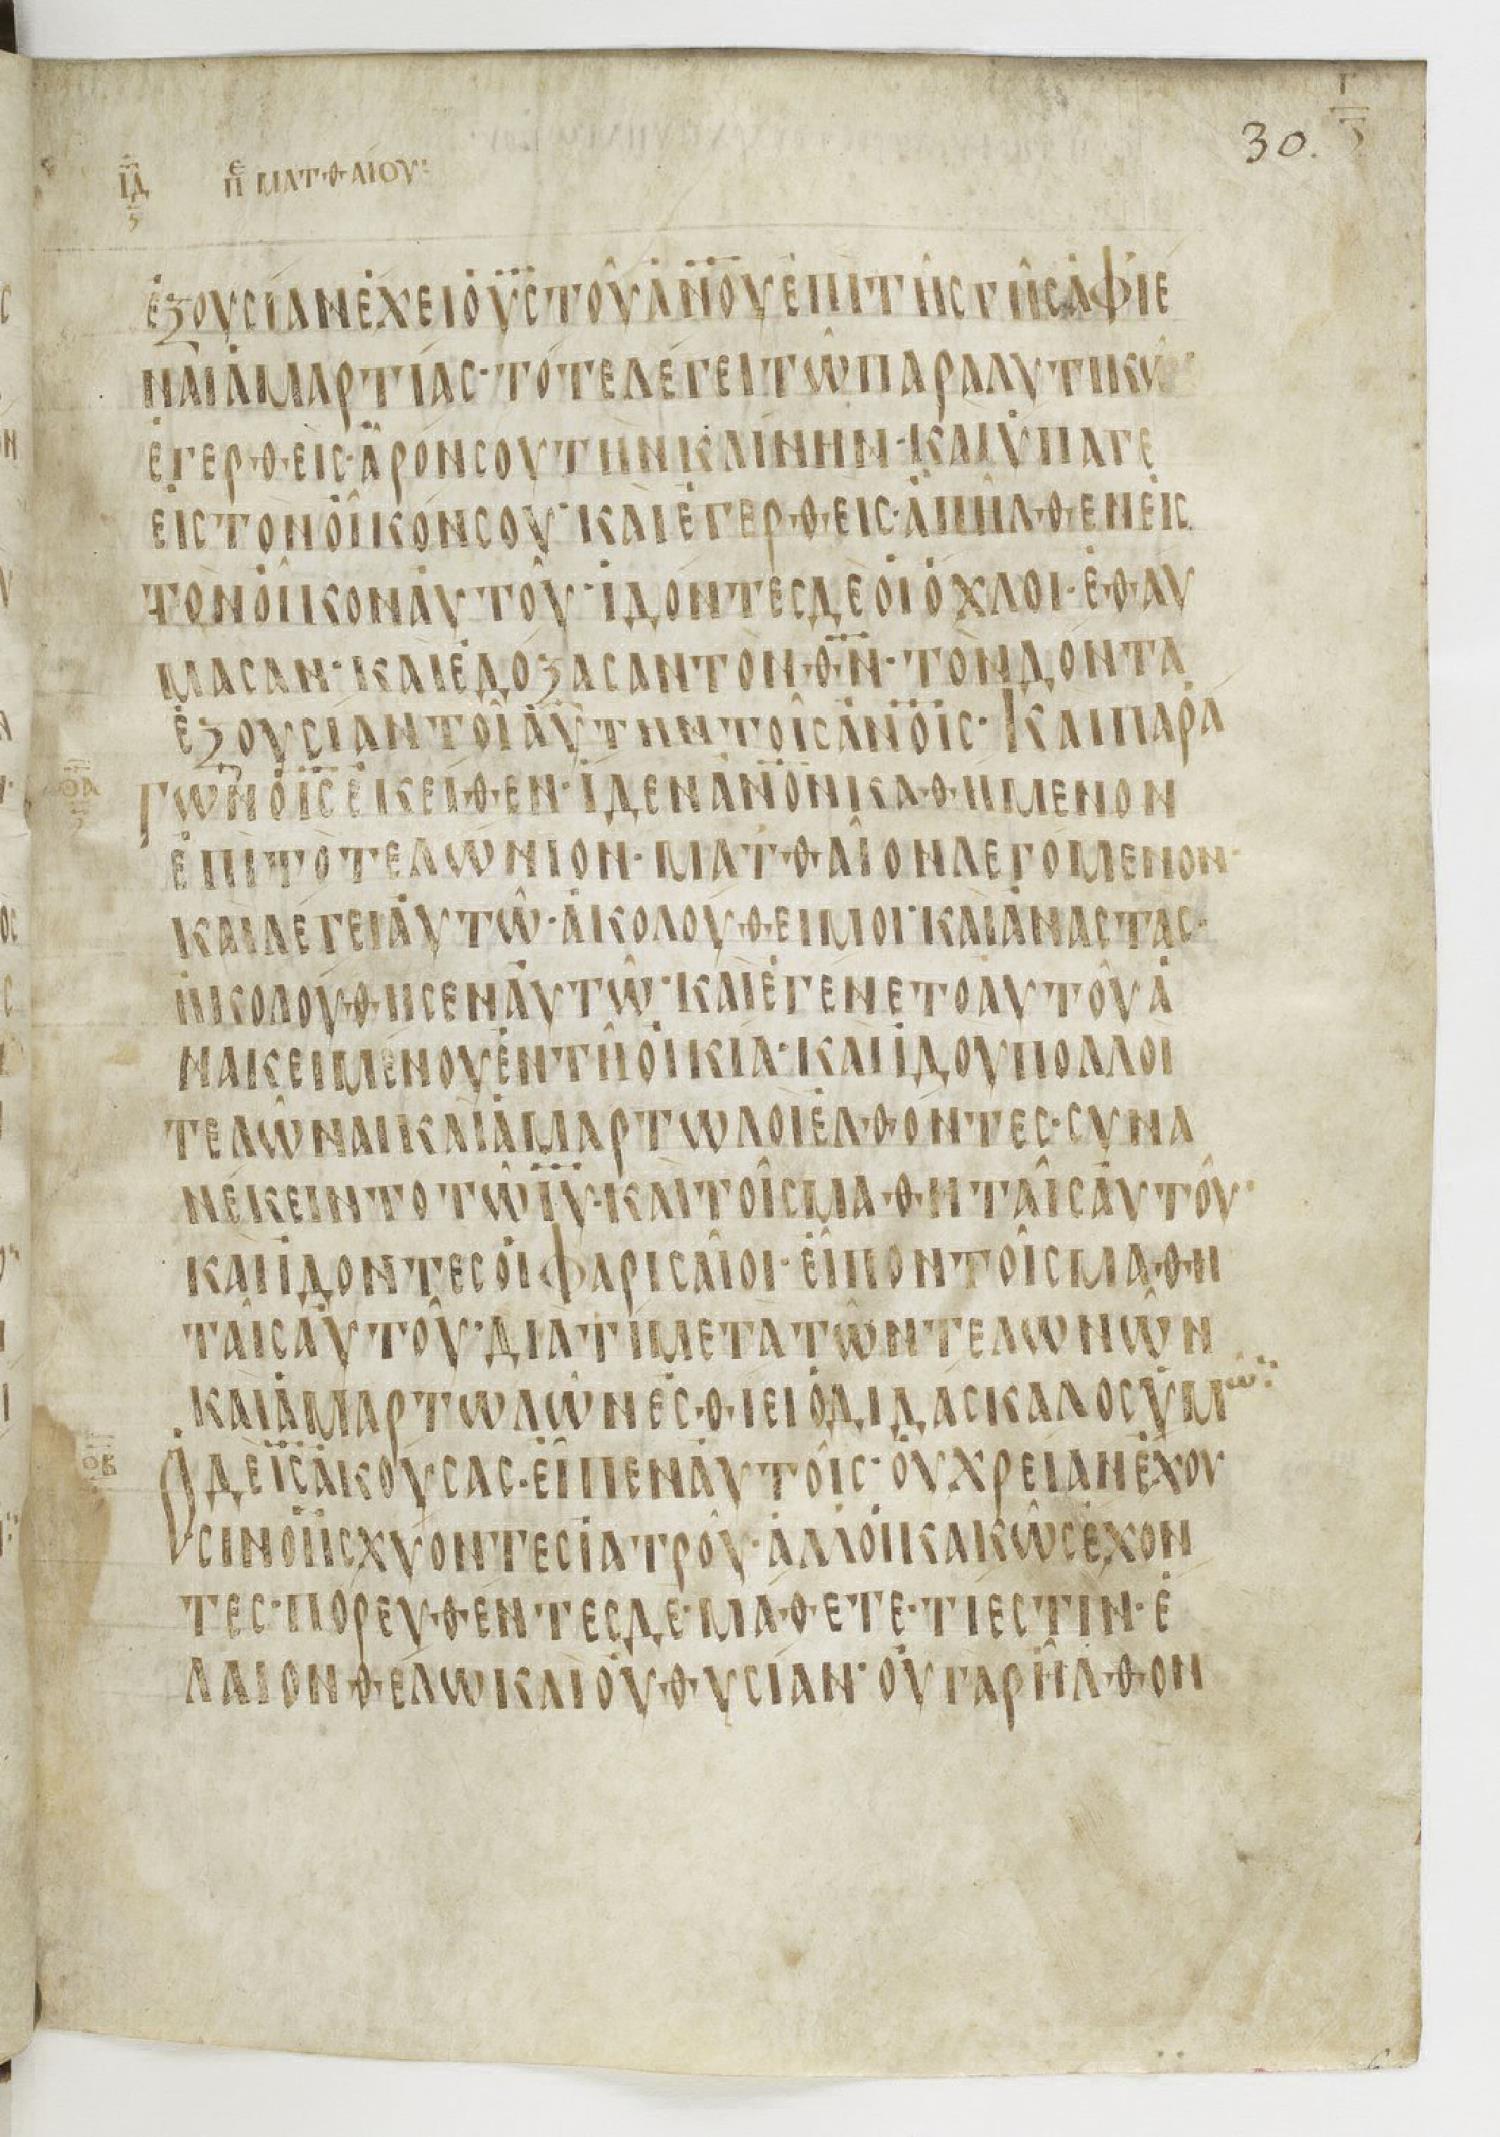 30.
ΙΔ Π ΜΑΤΘΑΙΟΥ:
ΕΞΟΥΣΙΑΝΕΧΕΙΟΥΣΤΟΥΑΝΟΥΕΠΙΤΗΣΓΗΣΑΦΙΕ
ΝΑΙΑΜΑΡΤΙΑΣ·ΤΟΤΕΛΕΓΕΙΤΩΠΑΡΑΛΥΤΙΚΩ
ΕΓΕΡΘΕΙΣ·ΑΡΟΝΣΟΥΤΗΝΚΛΙΝΗΝ·ΚΑΙΥΠΑΓΕ
ΕΙΣΤΟΝΟΙΚΟΝΣΟΥ·ΚΑΙΕΓΕΡΘΕΙΣ·ΑΠΗΛΘΕΝΕΙΣ
ΤΟΝΟΙΚΟΝΑΥΤΟΥ·ΙΔΟΝΤΕΣΔΕΟΙΟΧΛΟΙ·ΕΘΑΥ
ΜΑΣΑΝ·ΚΑΙΕΔΟΞΑΣΑΝΤΟΝΘΝ·ΤΟΝΔΟΝΤΑ
ΕΞΟΥΣΙΑΝΤΟΙΑΥΤΗΝΤΟΙΣΑΝΟΙΣ·ΚΑΙΠΑΡΑ
ΟΑ ΓΩΝΟΙΣΕΚΕΙΘΕΝ·ΙΔΕΝΑΝΟΝΚΑΘΗΜΕΝΟΝ
ΕΠΙΤΟΤΕΛΩΝΙΟΝ·ΜΑΤΘΑΙΟΝΛΕΓΟΜΕΝΟΝ·
ΚΑΙΛΕΓΕΙΑΥΤΩ·ΑΚΟΛΟΥΘΕΙΜΟΙ·ΚΑΙΑΝΑΣΤΑΣ·
ΗΚΟΛΟΥΘΗΣΕΝΑΥΤΩ·ΚΑΙΕΓΕΝΕΤΟΑΥΤΟΥΑ
ΝΑΚΕΙΜΕΝΟΥΕΝΤΗΟΙΚΙΑ·ΚΑΙΙΔΟΥΠΟΛΛΟΙ
ΤΕΛΩΝΑΙΚΑΙΑΜΑΡΤΩΛΟΙΕΛΘΟΝΤΕΣ·ΣΥΝΑ
ΝΕΚΕΙΝΤΟΤΩΙΥ·ΚΑΙΤΟΙΣΜΑΘΗΤΑΙΣΑΥΤΟΥ·
ΚΑΙΙΔΟΝΤΕΣΟΙΦΑΡΙΣΑΙΟΙ·ΕΙΠΟΝΤΟΙΣΜΑΘΗ
ΤΑΙΣΑΥΤΟΥ·ΔΙΑΤΙΜΕΤΑΤΩΝΤΕΛΩΝΩΝ
ΚΑΙΑΜΑΡΤΩΛΩΝΕΣΘΙΕΙΟΔΙΔΑΣΚΑΛΟΣΥΜΩ:
ΟΒ ΟΔΕΙΣΑΚΟΥΣΑΣ·ΕΙΠΕΝΑΥΤΟΙΣ·ΟΥΧΡΕΙΑΝΕΧΟΥ
ΣΙΝΟΙΙΣΧΥΟΝΤΕΣΙΑΤΡΟΥ·ΑΛΛΟΙΚΑΚΩΣΕΧΟΝ
ΤΕΣ·ΠΟΡΕΥΘΕΝΤΕΣΔΕ·ΜΑΘΕΤΕ·ΤΙΕΣΤΙΝ·Ε
ΛΑΙΟΝΘΕΛΩΚΑΙΟΥΘΥΣΙΑΝ·ΟΥΓΑΡΗΛΘΟΝ